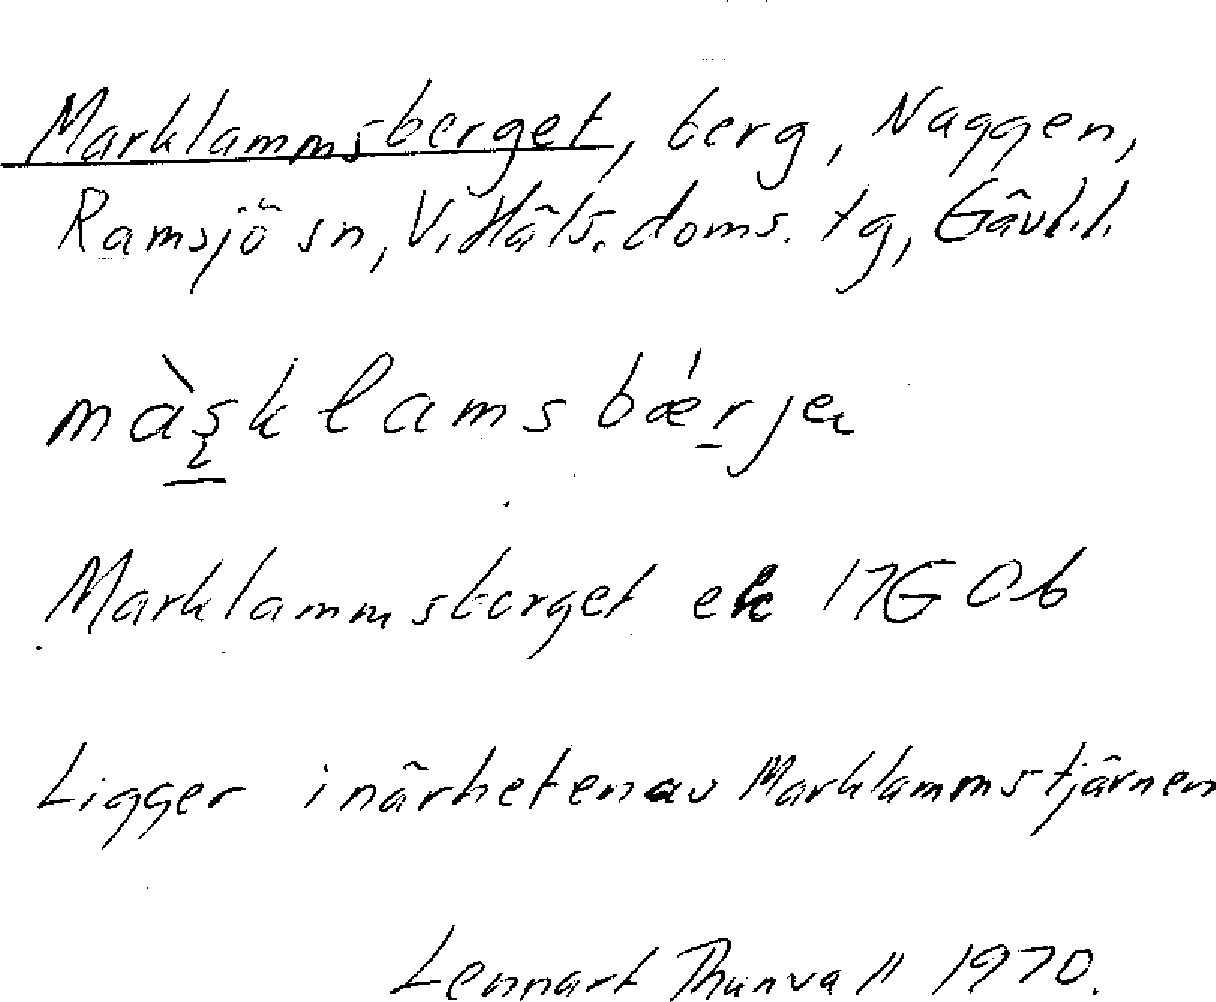 Marklammsberget, berg, Naggen,
Ramsjö sn, V. Häls. doms. tg, Gävl.l.
màʂklamsbǽrjeɩ
Marklammsberget ek 17G Ob
Ligger i närheten av Marklammstjärnen
Lennart Thunvall 1970.